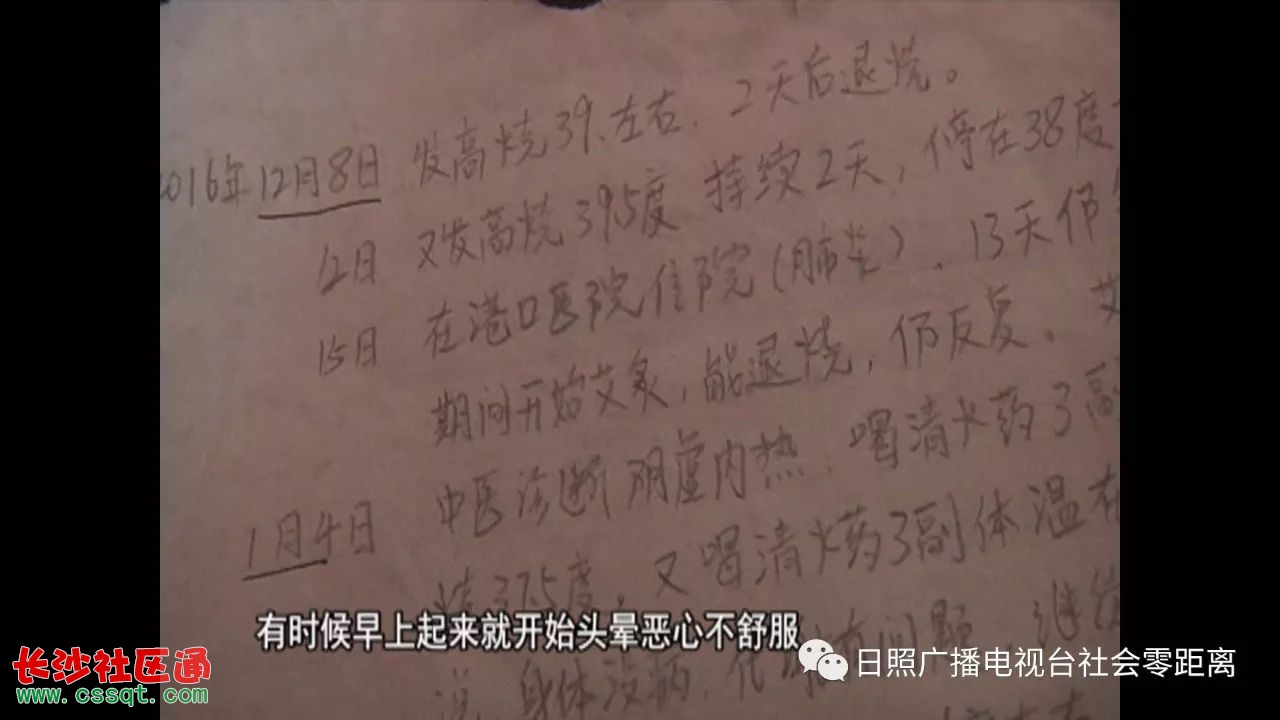 2016年12月8日 发高烧39.左右.2天后退烧。
12日 又发高烧39.5度 持续2天，停在38度
15日 在港口医院住院（肺炎），13天仍
期间开始艾灸，能退烧，仍反复。艾
1月4日 中医诊断阴虚内热.喝清火药3副
烧37.5度。又喝清火药3副体温在
有时候早上起来就开始头晕恶心不舒服
问题 继续
说 身体没病.
长沙社区通
www.cssqt.com
日照广播电视台社会零距离